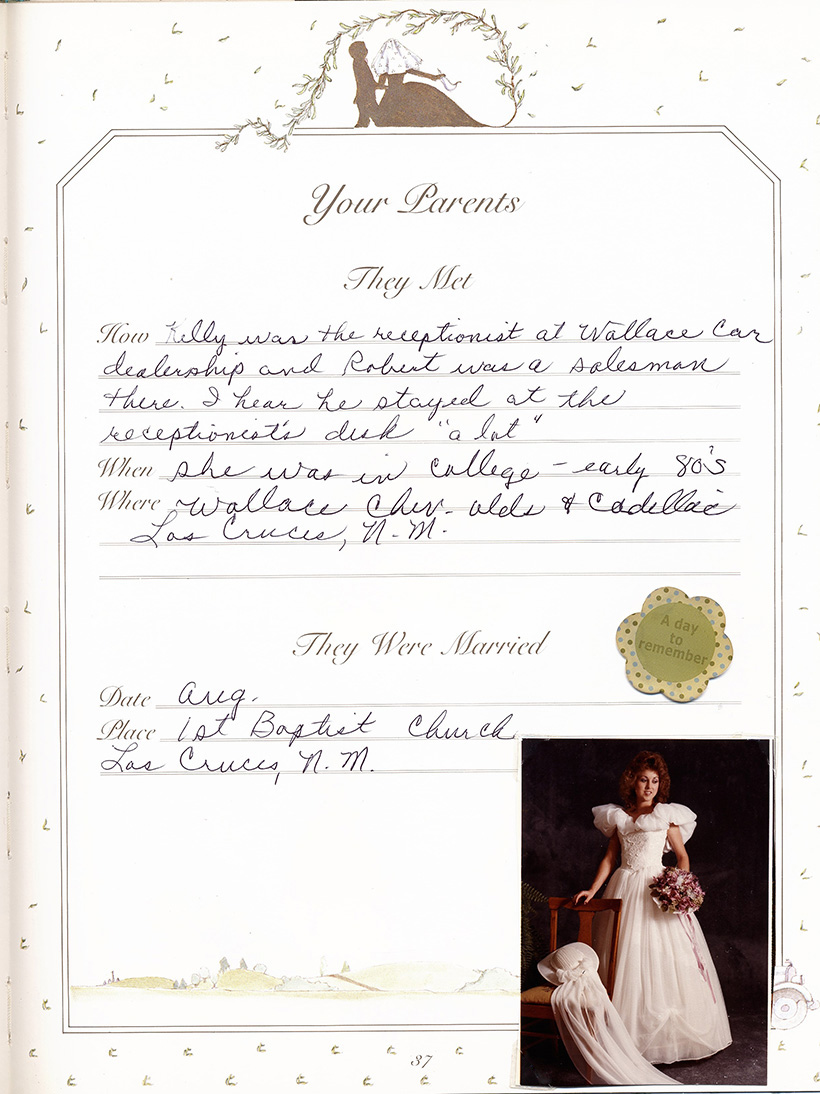 Your Parents
They Met
How Kelly was the receptionist at Wallace Car
dealership and Robert was a salesman
there. I hear he stayed at the
receptionist's desk "a lot"
When she was in college - early 80's
Where Wallace Chev- olds & Cadellac
Las Cruces, N.M.
They Were Married
A day
to
remember
Date Aug.
Place 1st Baptist Church
Las Cruces, N.M.
37